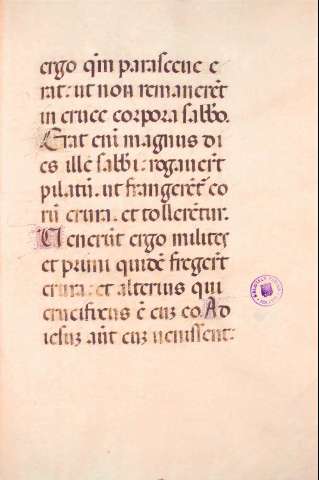 ergo qm̄ parasceue e
rat: ut non remanerēt
in cruce corpora sabb̄o.
Erat eni magnus di
es ille sabb̄i: rogauerūt
pilatū. ut frangerēt̄ eo
rū crura. et tollerētur.
Uenerūt ergo milites
et primi quidē fregerūt
crura: et alterius qui
crucifixus ē cuz eo. Ad
iesuz aūt cuz uenissent: